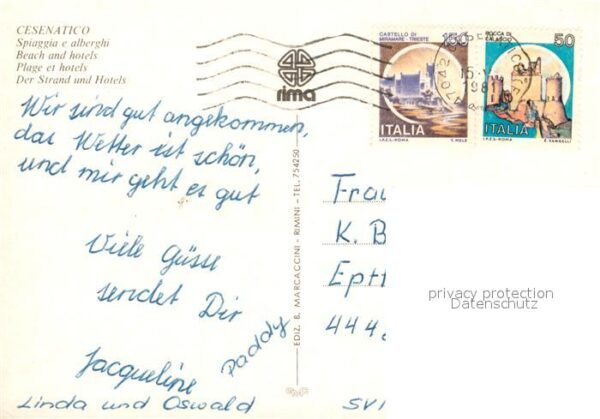 CESENATICO
Spiaggia e alberghi
Beach and hotels
Plage et hotels
Der Strand und Hotels
rima
CASTELLO DI
MIRAMARE - TRIESTE
150
ITALIA
I.P.Z.S.-ROMA
ROCCA DI
CALASCIO
50
ITALIA
I.P.Z.S.-ROMA
E. VANGELLI
47042
198
Wir sind gut angekommen,
das Wetter ist schön,
und mir geht es gut
Viele Güsse
sendet Dir
Jacqueline
Paddy
Linda und Oswald
EDIZ. B. MARCACCINI - RIMINI - TEL. 754250
Frau
K. B
Eptt
444
SVI
privacy protection
Datenschutz